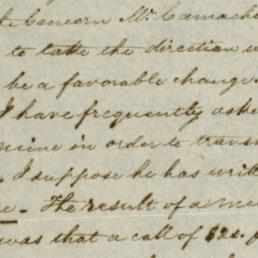 Concern Mr. Camach
to take the direction
be a favorable change
I have frequently aske
mine in order to trans
, I suppose he has writ
e. - The result of a me
was that a call of 62s.